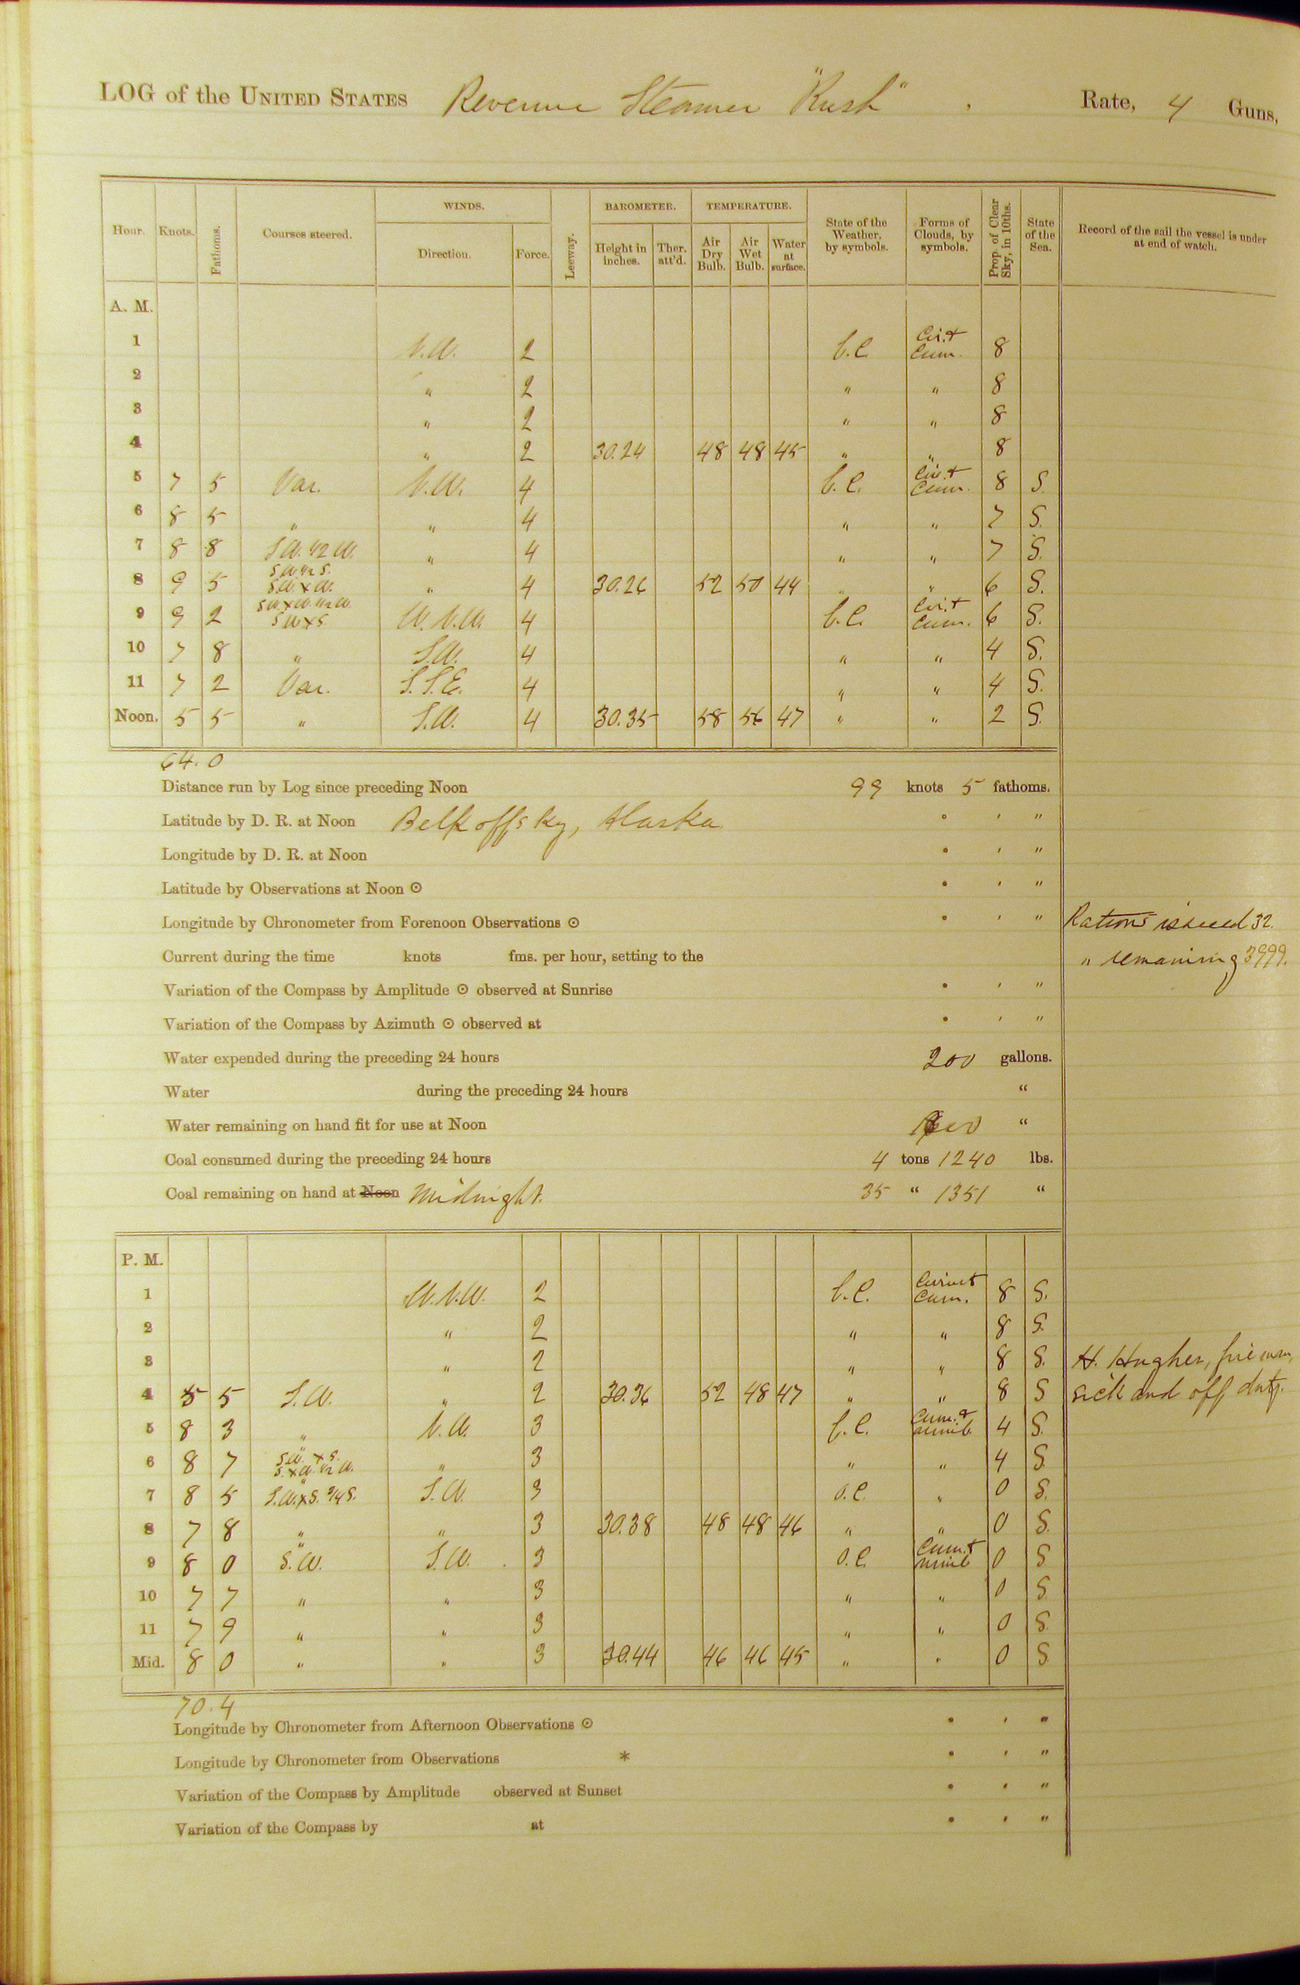 LOG of the UNITED STATES Revenue Steamer "Rush" . Rate, 4 Guns,
WINDS. BAROMETER. TEMPERATURE.
Hour. Knots. Fathoms. Courses steered. Direction. Force. Leeway. Height in inches. Ther. att'd. Air Dry Bulb. Air Wet Bulb. Water at surface. State of the Weather, by symbols. Forms of Clouds, by symbols. Prop. of Clear Sky, in 10ths. State of the Sea. Record of the sail the vessel is under at end of watch.
A. M.
1 N.W. 2 b.c. Cir. + Cum. 8
2 " 2 " " 8
3 " 2 " " 8
4 " 2 30.24 48 48 45 " " 8
5 7 5 Var. N.W. 4 b.c. Cir. + Cum. 8 S.
6 8 5 " " 4 " " 7 S.
7 8 8 S.W. 1/2 W. " 4 " " 7 S.
8 9 5 S.W. 1/2 S. S.W. x W. " 4 30.26 52 50 44 " " 6 S.
9 9 2 S.W. x W. 1/2 W. S.W. x S. W.N.W. 4 b.c. Cir. + Cum. 6 S.
10 7 8 " S.W. 4 " " 4 S.
11 7 2 Var. S.S.E. 4 " " 4 S.
Noon. 5 5 " S.W. 4 30.35 58 56 47 " " 2 S.
64.0
Distance run by Log since preceding Noon 99 knots 5 fathoms.
Latitude by D. R. at Noon Belkoffsky, Alaska ° ' "
Longitude by D. R. at Noon ° ' "
Latitude by Observations at Noon ⊙ ° ' "
Longitude by Chronometer from Forenoon Observations ⊙ ° ' " Rations issued 32.
Current during the time knots fms. per hour, setting to the " remaining 3999.
Variation of the Compass by Amplitude ⊙ observed at Sunrise ° ' "
Variation of the Compass by Azimuth ⊙ observed at ° ' "
Water expended during the preceding 24 hours 200 gallons.
Water during the preceding 24 hours "
Water remaining on hand fit for use at Noon "
Coal consumed during the preceding 24 hours 4 tons 1240 lbs.
Coal remaining on hand at Noon Midnight. 35 " 1351 "
P. M.
1 W.N.W. 2 b.c. Cirri + Cum. 8 S.
2 " 2 " " 8 S.
3 " 2 " " 8 S. H. Hughes, fireman,
4 5 5 S.W. " 2 30.36 52 48 47 " " 8 S sick and off duty.
5 8 3 " N.W. 3 b.c. Cum. + nimb 4 S.
6 8 7 S.W. x S. S. x W. 1/2 W. " 3 " " 4 S.
7 8 5 S.W. x S. 3/4 S. S.W. 3 o.c. " 0 S.
8 7 8 " " 3 30.38 48 48 46 " " 0 S.
9 8 0 S.W. S.W. 3 o.c. Cum. + nimb 0 S
10 7 7 " " 3 " " 0 S
11 7 9 " " 3 " " 0 S.
Mid. 8 0 " " 3 30.44 46 46 45 " " 0 S
70.4
Longitude by Chronometer from Afternoon Observations ⊙ ° ' "
Longitude by Chronometer from Observations * ° ' "
Variation of the Compass by Amplitude observed at Sunset ° ' "
Variation of the Compass by at ° ' "